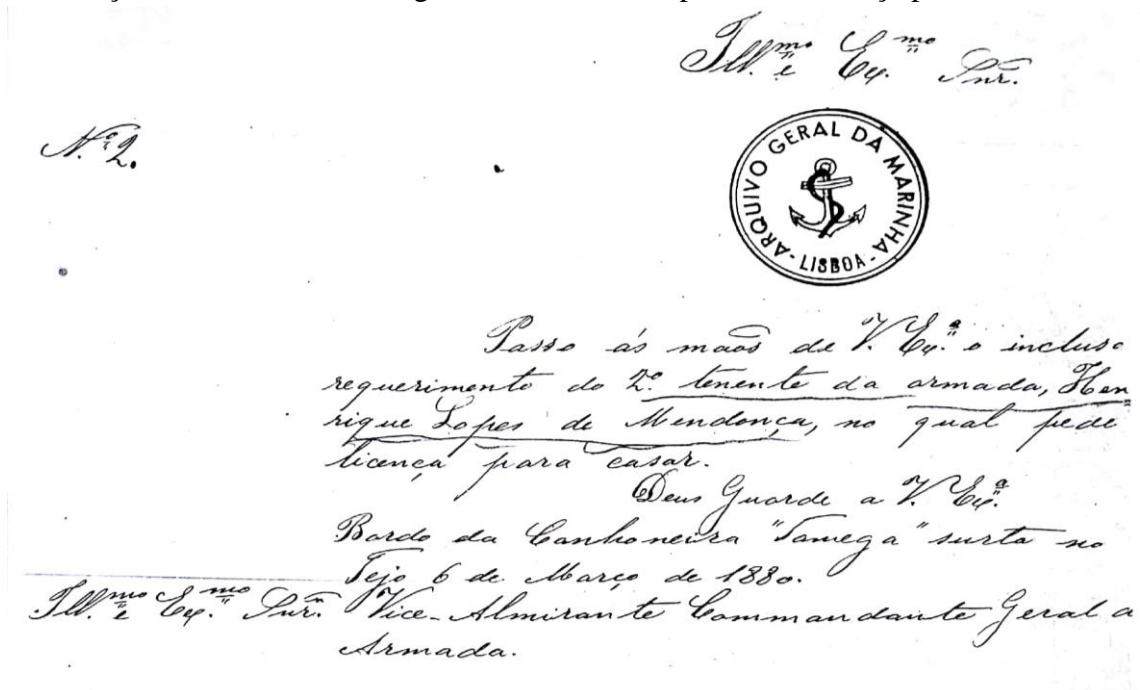 Ill.mo e Ex.mo Snr.
N.º 2.
ARQUIVO GERAL DA MARINHA
- LISBOA -
Passo ás maõs de V. Ex.ª o incluso
requerimento do 2.º tenente da armada, Hen-
rique Lopes de Mendonça, no qual pede
licença para casar.
Deus Guarde a V. Ex.ª
Bordo da Canhoneira "Tamega" surta no
Tejo 6 de Março de 1880.
Ill.mo e Ex.mo Snr. Vice-Almirante Commandante Geral a
Armada.